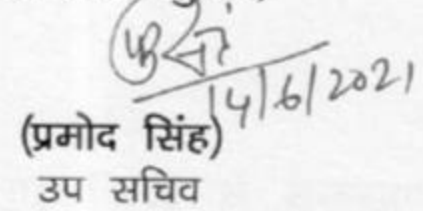 14/6/2021
(प्रमोद सिंह)
उप सचिव